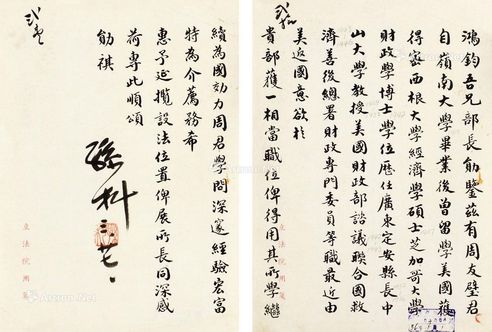 鴻鈞吾兄部長勛鑒茲有周友璧君
自嶺南大學畢業後曾留學美國獲
得密西根大學經濟學碩士芝加哥大學
財政學博士學位歷任廣東定安縣長中
山大學教授美國財政部諮議聯合國救
濟善後總署財政專門委員等職最近由
美返國意欲於
貴部獲一相當職位俾得用其所學繼
續為國効力周君學問深邃經驗宏富
特為介薦務希
惠予延攬設法位置俾展所長同深感
荷專此順頌
勛祺
孫科
立法院用箋
立法院用箋